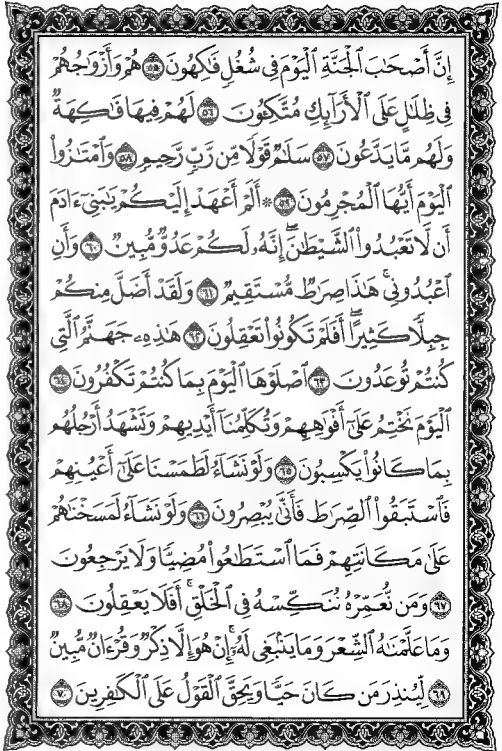 إِنَّ أَصْحَٰبَ الْجَنَّةِ الْيَوْمَ فِي شُغُلٍ فَاكِهُونَ ٥٥ هُمْ وَأَزْوَاجُهُمْ
فِي ظِلَالٍ عَلَى الْأَرَائِكِ مُتَّكِئُونَ ٥٦ لَهُمْ فِيهَا فَاكِهَةٌ
وَلَهُم مَّا يَدَّعُونَ ٥٧ سَلَامٌ قَوْلًا مِّن رَّبٍّ رَّحِيمٍ ٥٨ وَامْتَازُوا
الْيَوْمَ أَيُّهَا الْمُجْرِمُونَ ٥٩ * أَلَمْ أَعْهَدْ إِلَيْكُمْ يَٰبَنِي ءَادَمَ
أَن لَّا تَعْبُدُوا الشَّيْطَانَ ۖ إِنَّهُ لَكُمْ عَدُوٌّ مُّبِينٌ ٦٠ وَأَنِ
اعْبُدُونِي ۚ هَٰذَا صِرَاطٌ مُّسْتَقِيمٌ ٦١ وَلَقَدْ أَضَلَّ مِنكُمْ
جِبِلًّا كَثِيرًا ۖ أَفَلَمْ تَكُونُوا تَعْقِلُونَ ٦٢ هَٰذِهِ جَهَنَّمُ الَّتِي
كُنتُمْ تُوعَدُونَ ٦٣ اصْلَوْهَا الْيَوْمَ بِمَا كُنتُمْ تَكْفُرُونَ ٦٤
الْيَوْمَ نَخْتِمُ عَلَىٰ أَفْوَاهِهِمْ وَتُكَلِّمُنَا أَيْدِيهِمْ وَتَشْهَدُ أَرْجُلُهُم
بِمَا كَانُوا يَكْسِبُونَ ٦٥ وَلَوْ نَشَاءُ لَطَمَسْنَا عَلَىٰ أَعْيُنِهِمْ
فَاسْتَبَقُوا الصِّرَاطَ فَأَنَّىٰ يُبْصِرُونَ ٦٦ وَلَوْ نَشَاءُ لَمَسَخْنَاهُمْ
عَلَىٰ مَكَانَتِهِمْ فَمَا اسْتَطَاعُوا مُضِيًّا وَلَا يَرْجِعُونَ
٦٧ وَمَن نُّعَمِّرْهُ نُنَكِّسْهُ فِي الْخَلْقِ ۚ أَفَلَا يَعْقِلُونَ ٦٨
وَمَا عَلَّمْنَاهُ الشِّعْرَ وَمَا يَنبَغِي لَهُ ۚ إِنْ هُوَ إِلَّا ذِكْرٌ وَقُرْءَانٌ مُّبِينٌ
٦٩ لِّيُنذِرَ مَن كَانَ حَيًّا وَيَحِقَّ الْقَوْلُ عَلَى الْكَافِرِينَ ٧٠